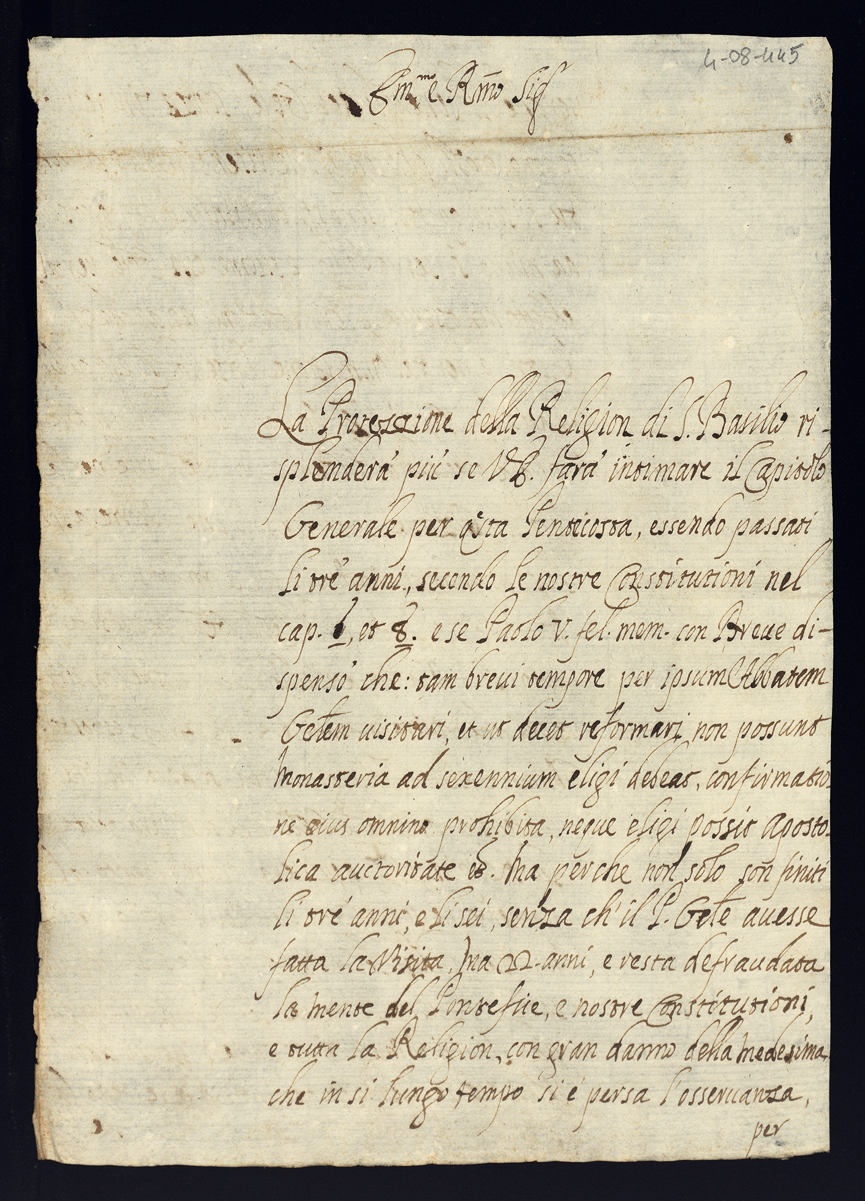 4-08-445
Em.mo e R.mo Sig.r
La Protessione della Religion di S. Basilio ri-
splenderà più se V.E. farà intimare il Capitolo
Generale per q̃sta Penticosta, essendo passati
li tré anni, secondo le nostre Constitutioni nel
cap. et 8. e se Paolo V. fel. mem. con Breve di-
spensò che: tam brevi tempore per ipsum Abbatem
Gẽlem visitari, et ut decet reformari non possunt
Monasteria ad sexennium eligi debeat, confirmatio-
ne eius omnino prohibita, neque eligi possit aposto-
lica auctoritate et. Ma perche non solo son finiti
li tré anni, e li sei, senza ch'il P. Gẽle avesse
fatta la Visita, Ma 22 anni, e resta defraudata
la mente del Pontefice, e nostre Constitutioni,
e tutta la Religion, con gran danno della medesima
che in si lungo tempo si é persa l'osservanza,
per